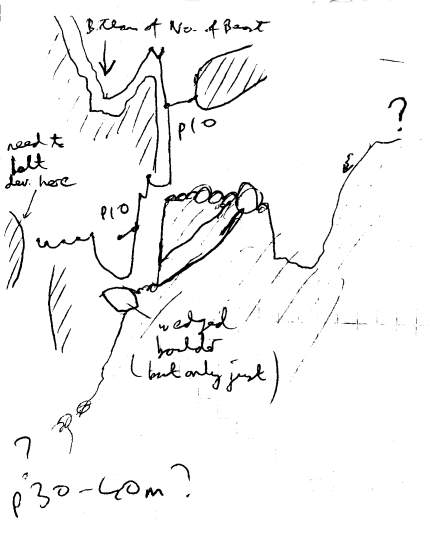 Bottom of No. of Beast
?
p10
need to
bolt
dev. here
p10
wedged
boulder
(but only just)
?
p30-40m?